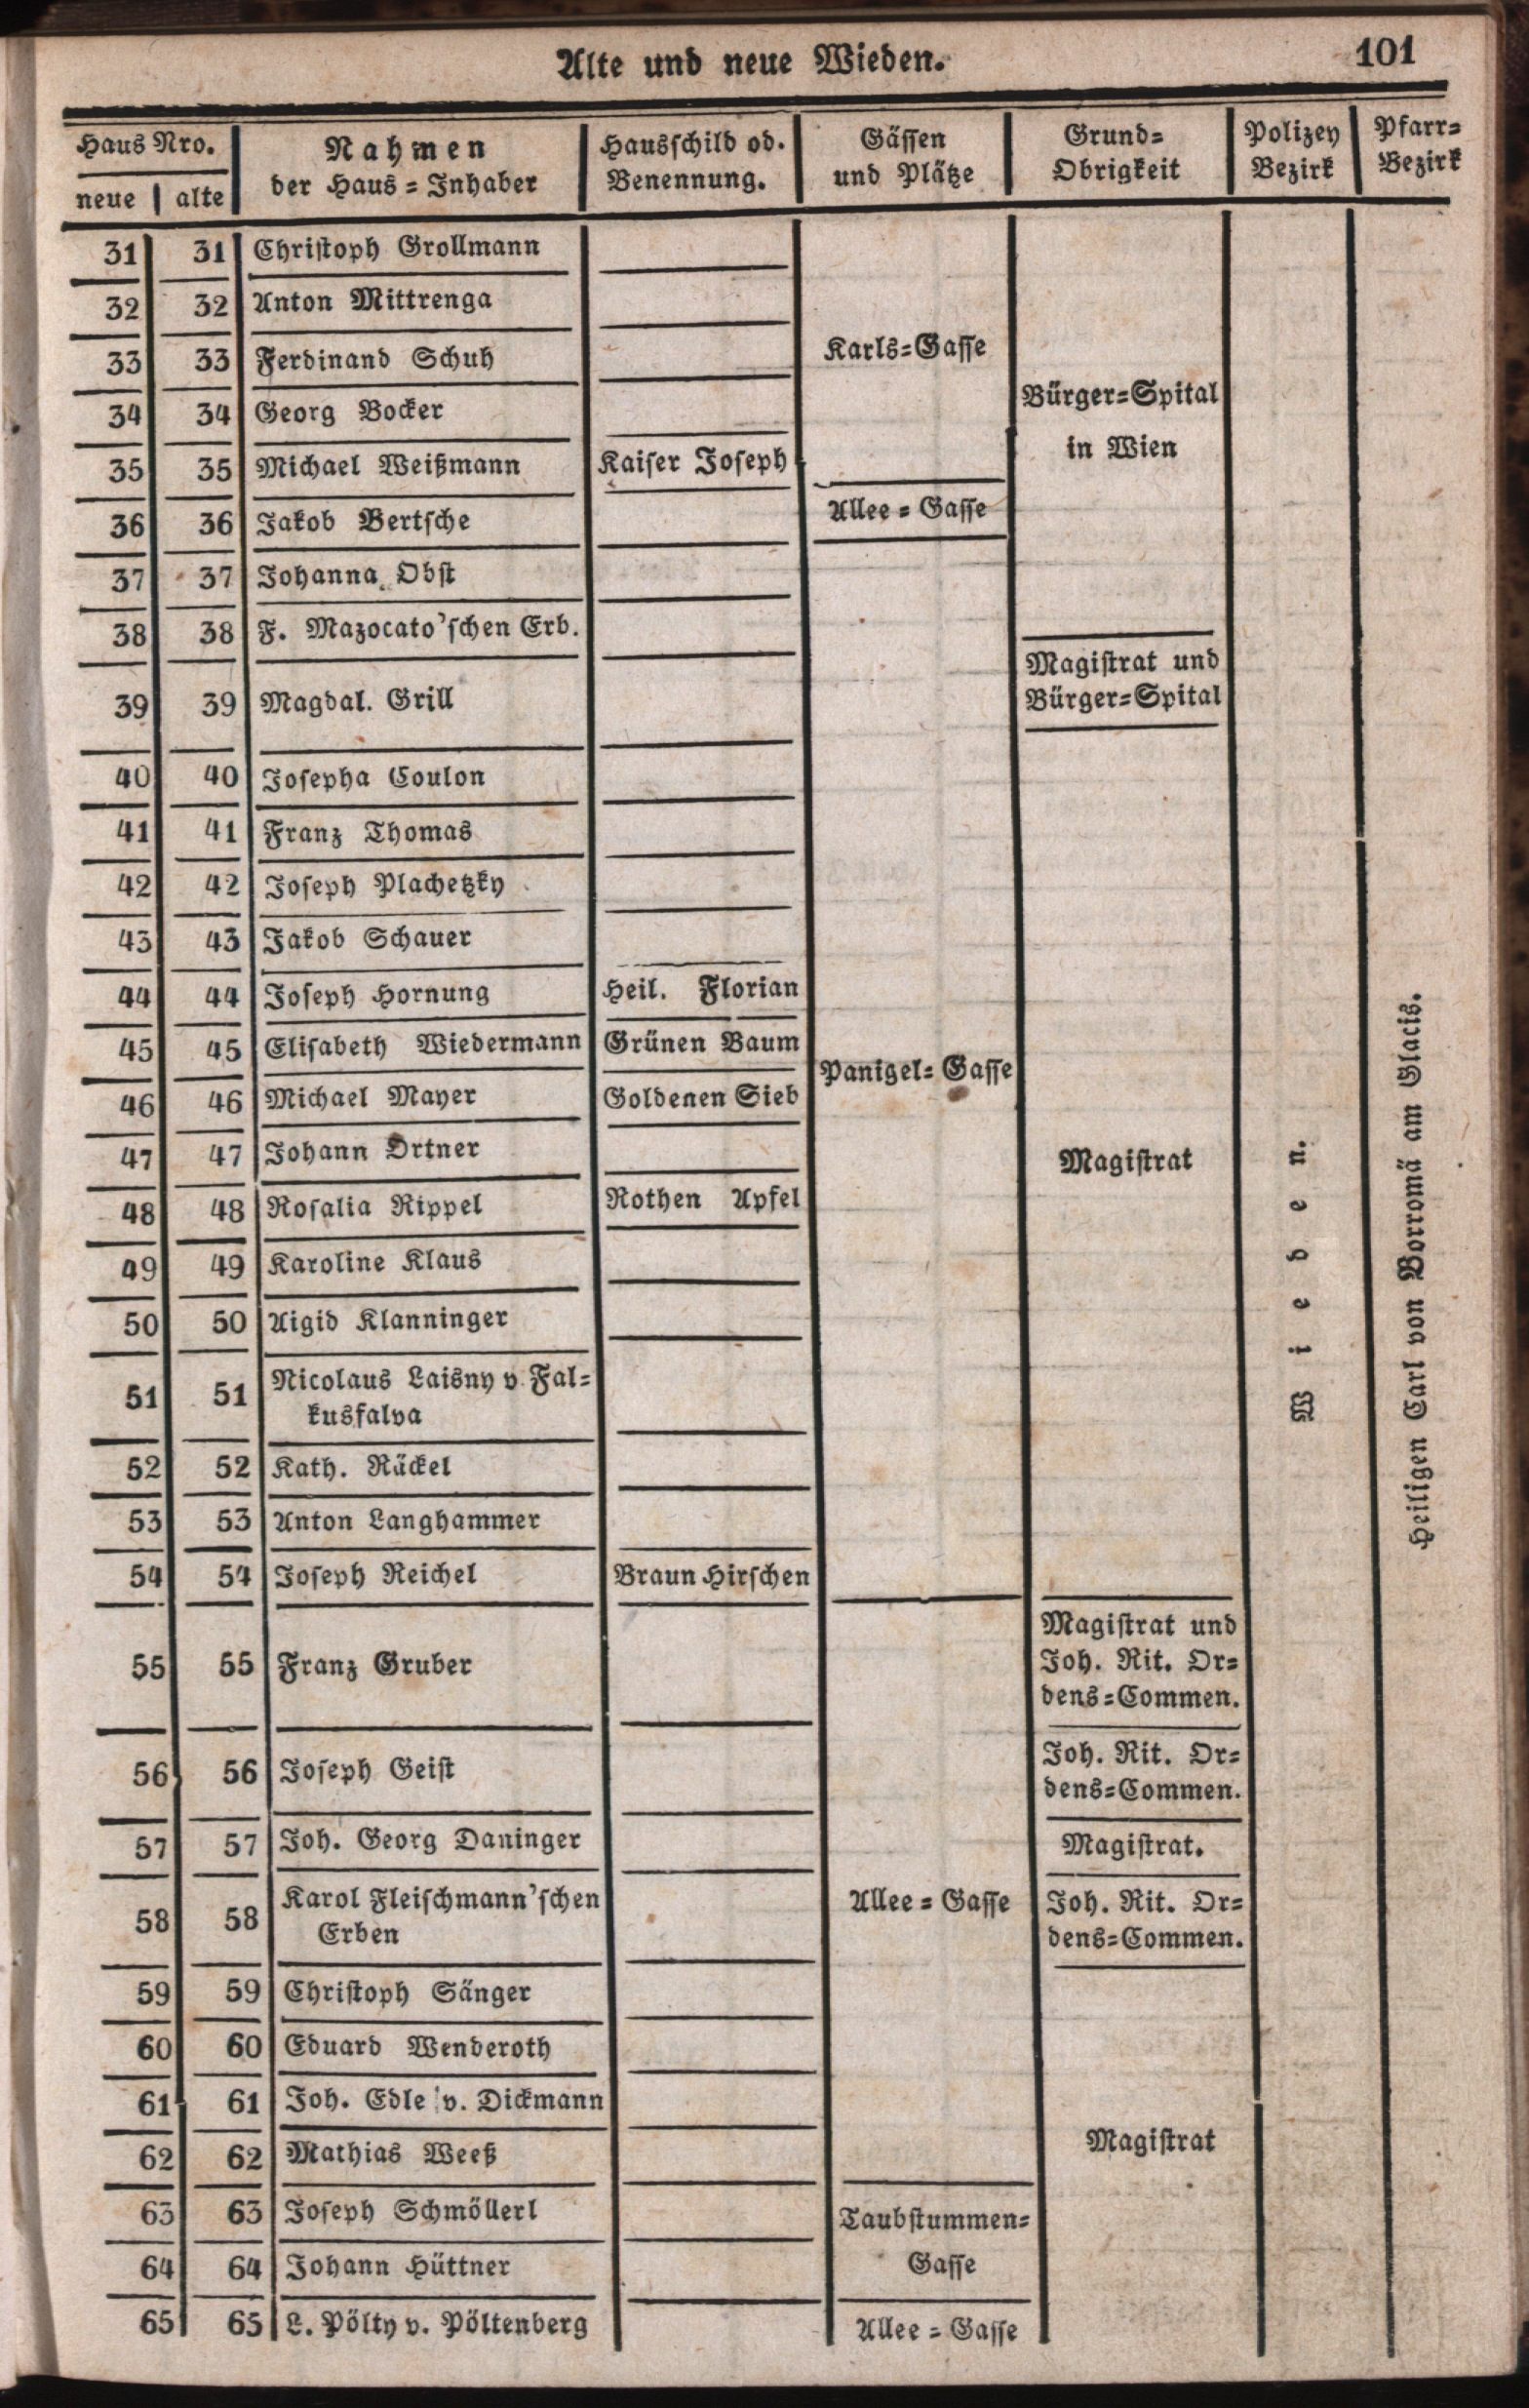 Alte und neue Wieden. 101
Haus Nro. Nahmen Hausschild od. Gässen Grund= Polizey Pfarr=
neue alte der Haus=Inhaber Benennung. und Plätze Obrigkeit Bezirk Bezirk
31 31 Christoph Grollmann
32 32 Anton Mittrenga
33 33 Ferdinand Schuh Karls=Gasse
34 34 Georg Bocker Bürger=Spital
35 35 Michael Weißmann Kaiser Joseph in Wien
36 36 Jakob Bertsche Allee=Gasse
37 37 Johanna Obst
38 38 F. Mazocato'schen Erb.
39 39 Magdal. Grill Magistrat und
Bürger=Spital
40 40 Josepha Coulon
41 41 Franz Thomas
42 42 Joseph Plachetzky
43 43 Jakob Schauer
44 44 Joseph Hornung Heil. Florian
45 45 Elisabeth Wiedermann Grünen Baum Panigel=Gasse
46 46 Michael Mayer Goldenen Sieb
47 47 Johann Ortner Magistrat
48 48 Rosalia Rippel Rothen Apfel
49 49 Karoline Klaus
50 50 Aigid Klanninger
51 51 Nicolaus Laisny v. Fal=
kusfalva
52 52 Kath. Räckel
53 53 Anton Langhammer
54 54 Joseph Reichel Braun Hirschen
55 55 Franz Gruber Magistrat und
Joh. Rit. Or=
dens=Commen.
56 56 Joseph Geist Joh. Rit. Or=
dens=Commen.
57 57 Joh. Georg Daninger Magistrat.
58 58 Karol Fleischmann'schen Allee=Gasse Joh. Rit. Or=
Erben dens=Commen.
59 59 Christoph Sänger
60 60 Eduard Wenderoth
61 61 Joh. Edle v. Dickmann
62 62 Mathias Weeß Magistrat
63 63 Joseph Schmöllerl Taubstummen=
64 64 Johann Hüttner Gasse
65 65 L. Pölty v. Pöltenberg Allee=Gasse
Wieden.
Heiligen Carl von Borromä am Glacis.